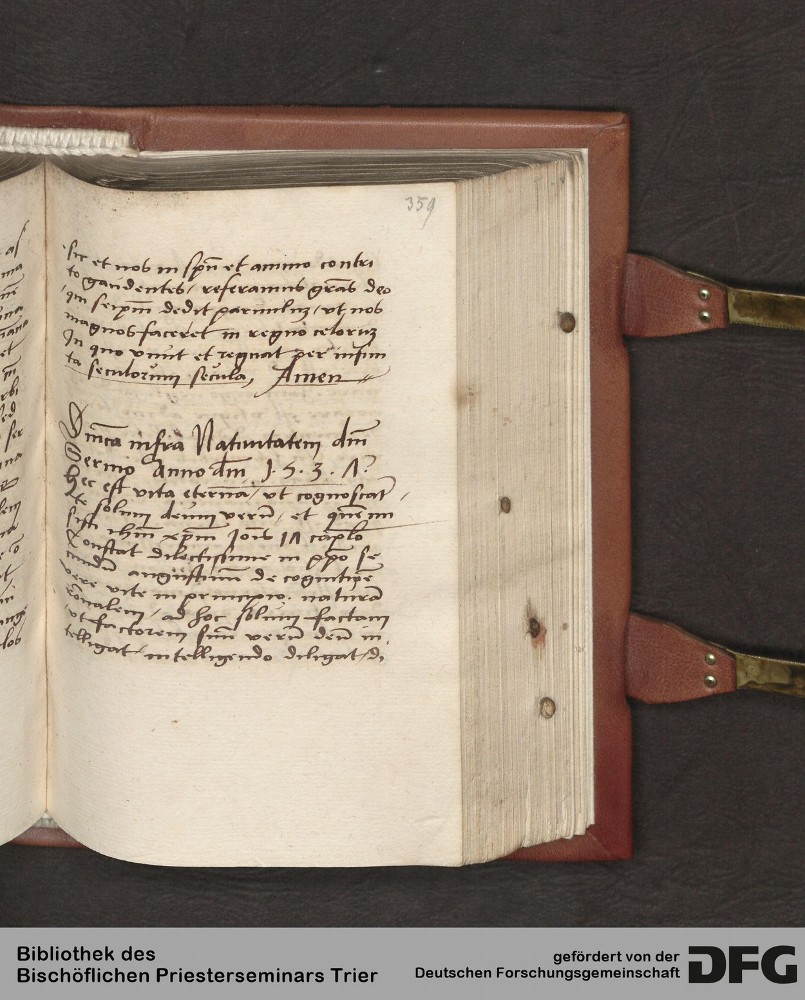 359
sic et nos in spũ et animo contri
to gaudentes, referamus grãs deo
qui seipm̃ dedit paruulũ, ut nos
magnos faceret in regno celorũ
In quo viuit et regnat per infini
ta seculorum secula, Amen
Dñica infra Natiuitatem dñi
Sermo Anno dñi 1.5.3.
Hec est vita eterna, ut cognoscãt
te solum deum verũ, et quem mi
sisti ihm̃ xpm̃ Joñis 17 caplo
Constat dilectissime in xpo se
cundũ augustinũ de cognitione
vere vite in principio. naturã
rõnalem, ad hoc solum factam
ut factorem suũ verũ deũ in
telligat, intelligendo diligat, di
Bibliothek des
Bischöflichen Priesterseminars Trier
gefördert von der
Deutschen Forschungsgemeinschaft
DFG